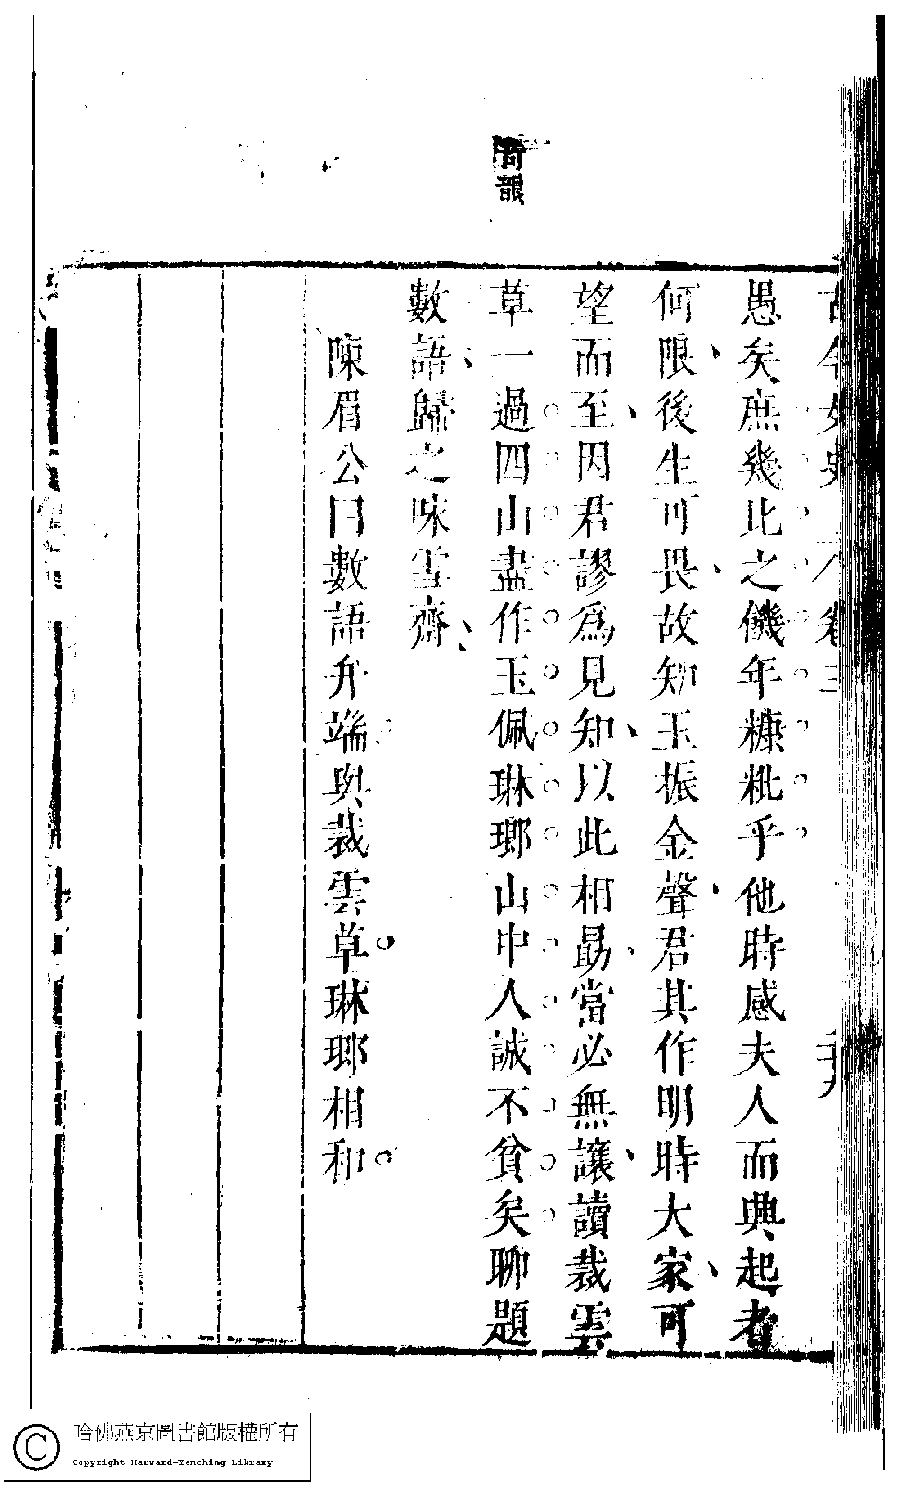 古今女史 卷三
愚矣庶幾此之饑年糠粃乎他時感夫人而典起者
何限後生可畏故知玉振金聲君其作明時大家可
望而至因君謬為見知以此相勗當必無讓讀裁雲
草一過四山盡作玉佩琳瑯山中人誠不貧矣聊題
數語歸之味雲齋
陳眉公曰數語弁端與裁雲草琳瑯相和
韻
哈佛燕京圖書館版權所有
Copyright Harvard-Yenching Library